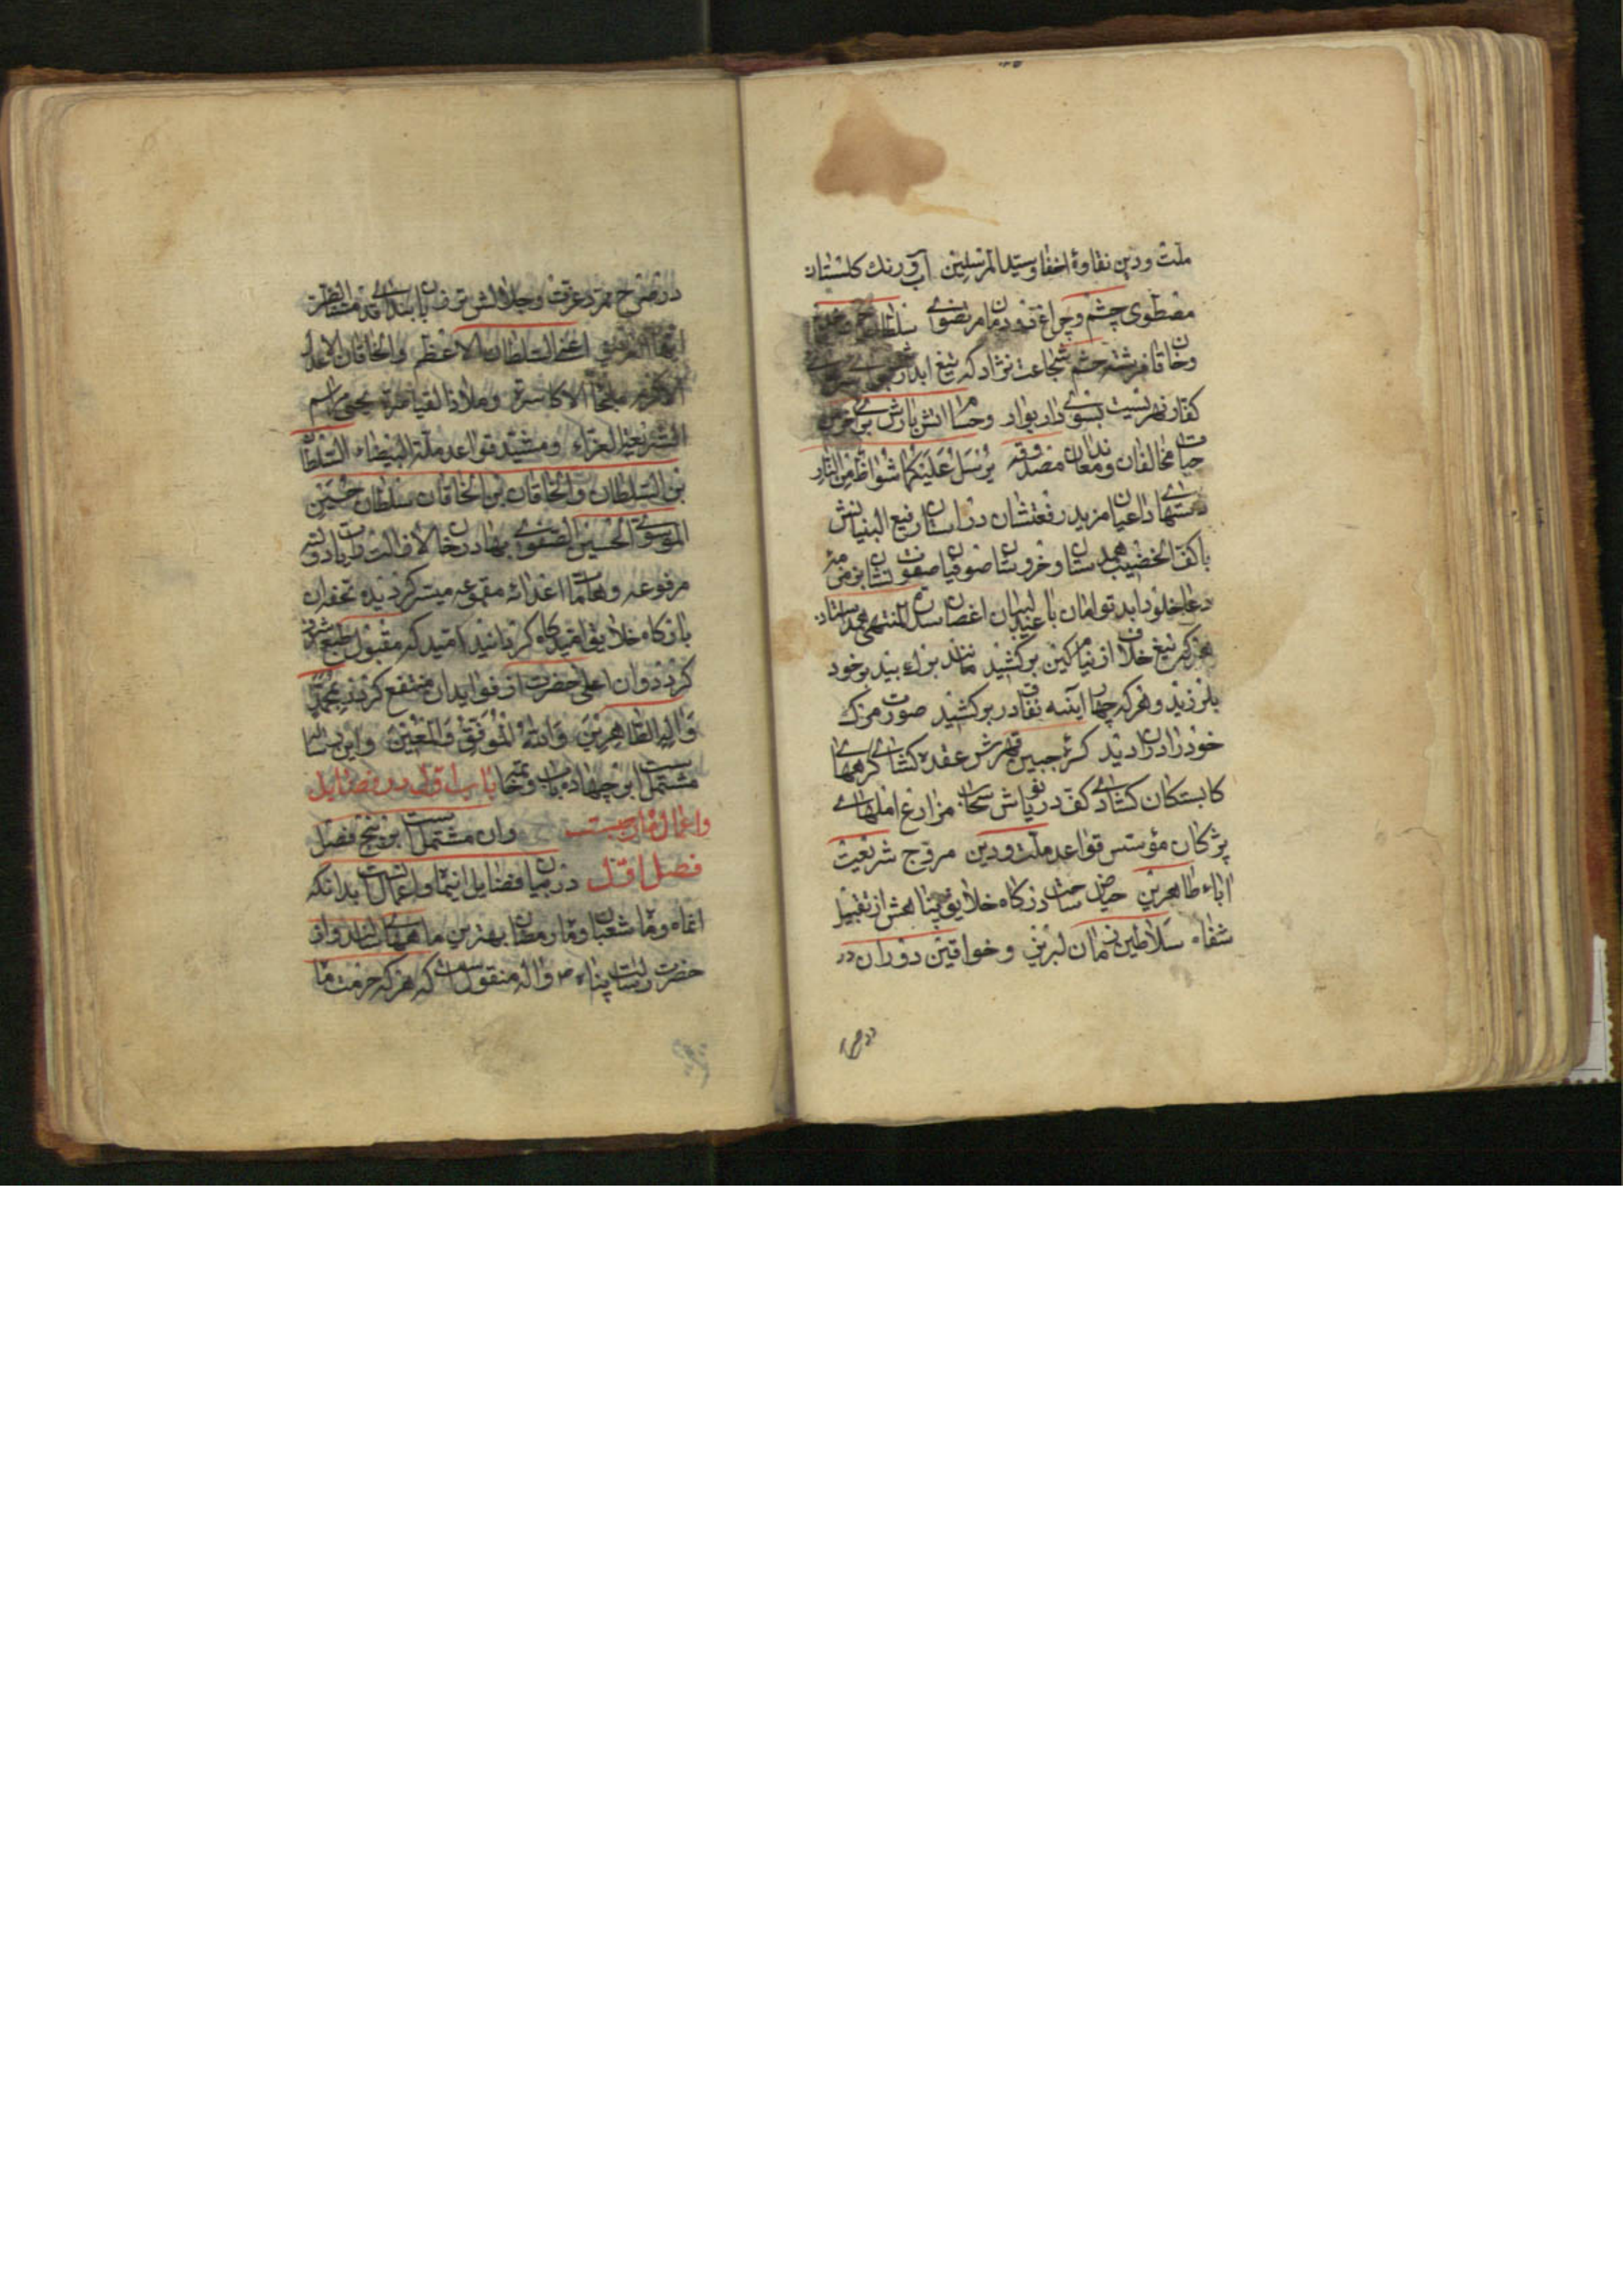 ملت ودین نقاوۀ احفاد سید المرسلین آب ورنك كلستان
مصطفوی چشم وچراغ دودمان مرتضوی سلطان
وخاقان فرشته حشم شجاعت نژاد كه تیغ ابدارش
كفار نهریست بسوی دار بوار وحسام اتش بارش بر خرمن
حیات مخالفان ومعاندان مصدوقه یُرْسَلُ عَلَیْكُما شُواظٌ مِنَ النّارِ
دستهای داعیان مزید رفعتشان در استان رفیع البنیانش
با كف الخضیب همدستان وخروشان صوفیان صفوت نشان بزمزمۀ
دعای خلود ابد توامان با عندلیبان اغصان سدرة المنتهی همداستان
هركه تیغ خلاف از نیام كین بركشید مانند برك بید بر خود
بلرزید وهركه چهار اینه نفاق در بركشید صورت مرك
خود را در ان دید كره جبین قهرش عقده كشای كرههای
كار بستكان كشادی كف دریاش سحاب مزارع املهای
پژمردكان مؤسس قواعد ملت ودین مروج شریعت
اباء طاهرین حیاض ساحت دركاه خلایق پناهش از تقبیل
شفاه سلاطین زمان لبریز وخواقین دوران در
در صرح ممرد عزت وجلالش شرف یاب بندكی
اعنی السلطان الاعظم والخاقان الاعدل
الاكرم ملجأ الاكاسرة وملاذ القیاصرة محیی مراسم
الشریعة الغراء ومشید قواعد ملة البیضاء السلطان
بن السلطان والخاقان بن الخاقان سلطان حسین
الموسوی الحسینی الصفوی بهادر خان لا زالت رایات دولته
مرفوعه وهامات اعدائه مقموعه میسر كردیده تحفه ان
باركاه خلایق امیدكاه كردانید امید كه مقبول طبع اشرف
كردد وان اعلی حضرت از فواید ان منتفع كردند بمحمد
وَآلِهِ الطّاهِرینَ وَاللهُ الْمُوَفِّقُ وَالْمُعینُ واین رساله
مشتمل است بر چهارده باب وخاتمه باب اول در فضایل
واعمال ماه رجبست وان مشتمل است بر پنج فصل
فصل اول در بیان فضایل اینماه واعمال انست بدانكه
اینماه وماه شعبان وماه رمضان بهترین ماههای سالند واز
حضرت رسالت پناه ص واله منقول است كه هركه حرمت ماه